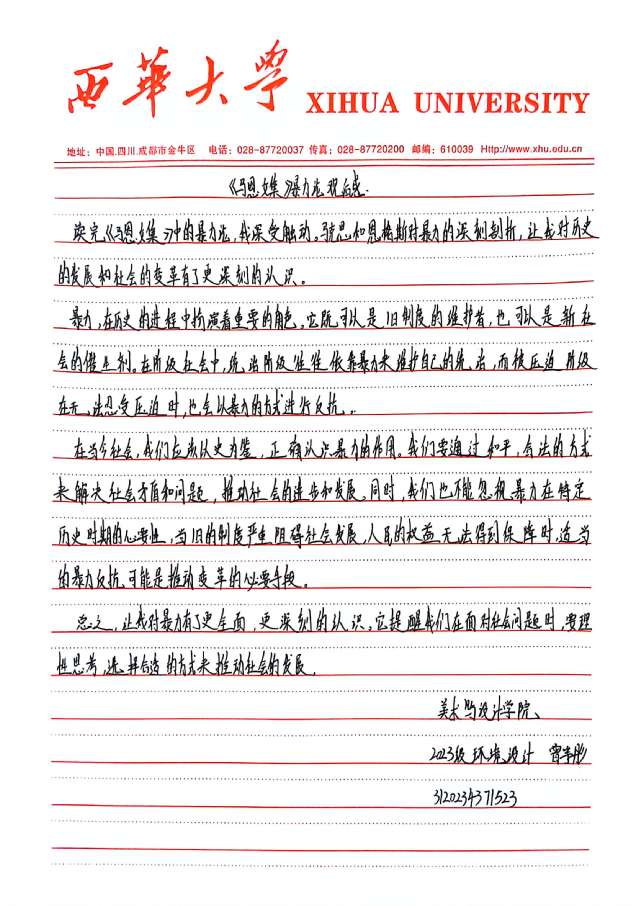 西華大学 XIHUA UNIVERSITY
地址：中国.四川.成都市金牛区 电话：028-87720037 传真：028-87720200 邮编：610039 Http://www.xhu.edu.cn
《马恩文集》暴力论观后感.
读完《马恩文集》中的暴力论，我深受触动。马克思和恩格斯对暴力的深刻剖析，让我对历史
的发展和社会的变革有了更深刻的认识。
暴力，在历史的进程中扮演着重要的角色。它既可以是旧制度的维护者，也可以是新社
会的催生剂。在阶级社会中，统治阶级往往依靠暴力来维护自己的统治，而被压迫阶级
在无法忍受压迫时，也会以暴力的方式进行反抗。
在当今社会，我们应该以史为鉴，正确认识暴力的作用。我们要通过和平，合法的方式
来解决社会矛盾和问题，推动社会的进步和发展。同时，我们也不能忽视暴力在特定
历史时期的必要性，当旧的制度严重阻碍社会发展，人民的权益无法得到保障时，适当
的暴力反抗、可能是推动变革的必要手段。
总之，让我对暴力有了更全面，更深刻的认识。它提醒我们在面对社会问题时，要理
性思考，选择合适的方式来推动社会的发展.
美术与设计学院、
2023级 环境设计
3120234371523